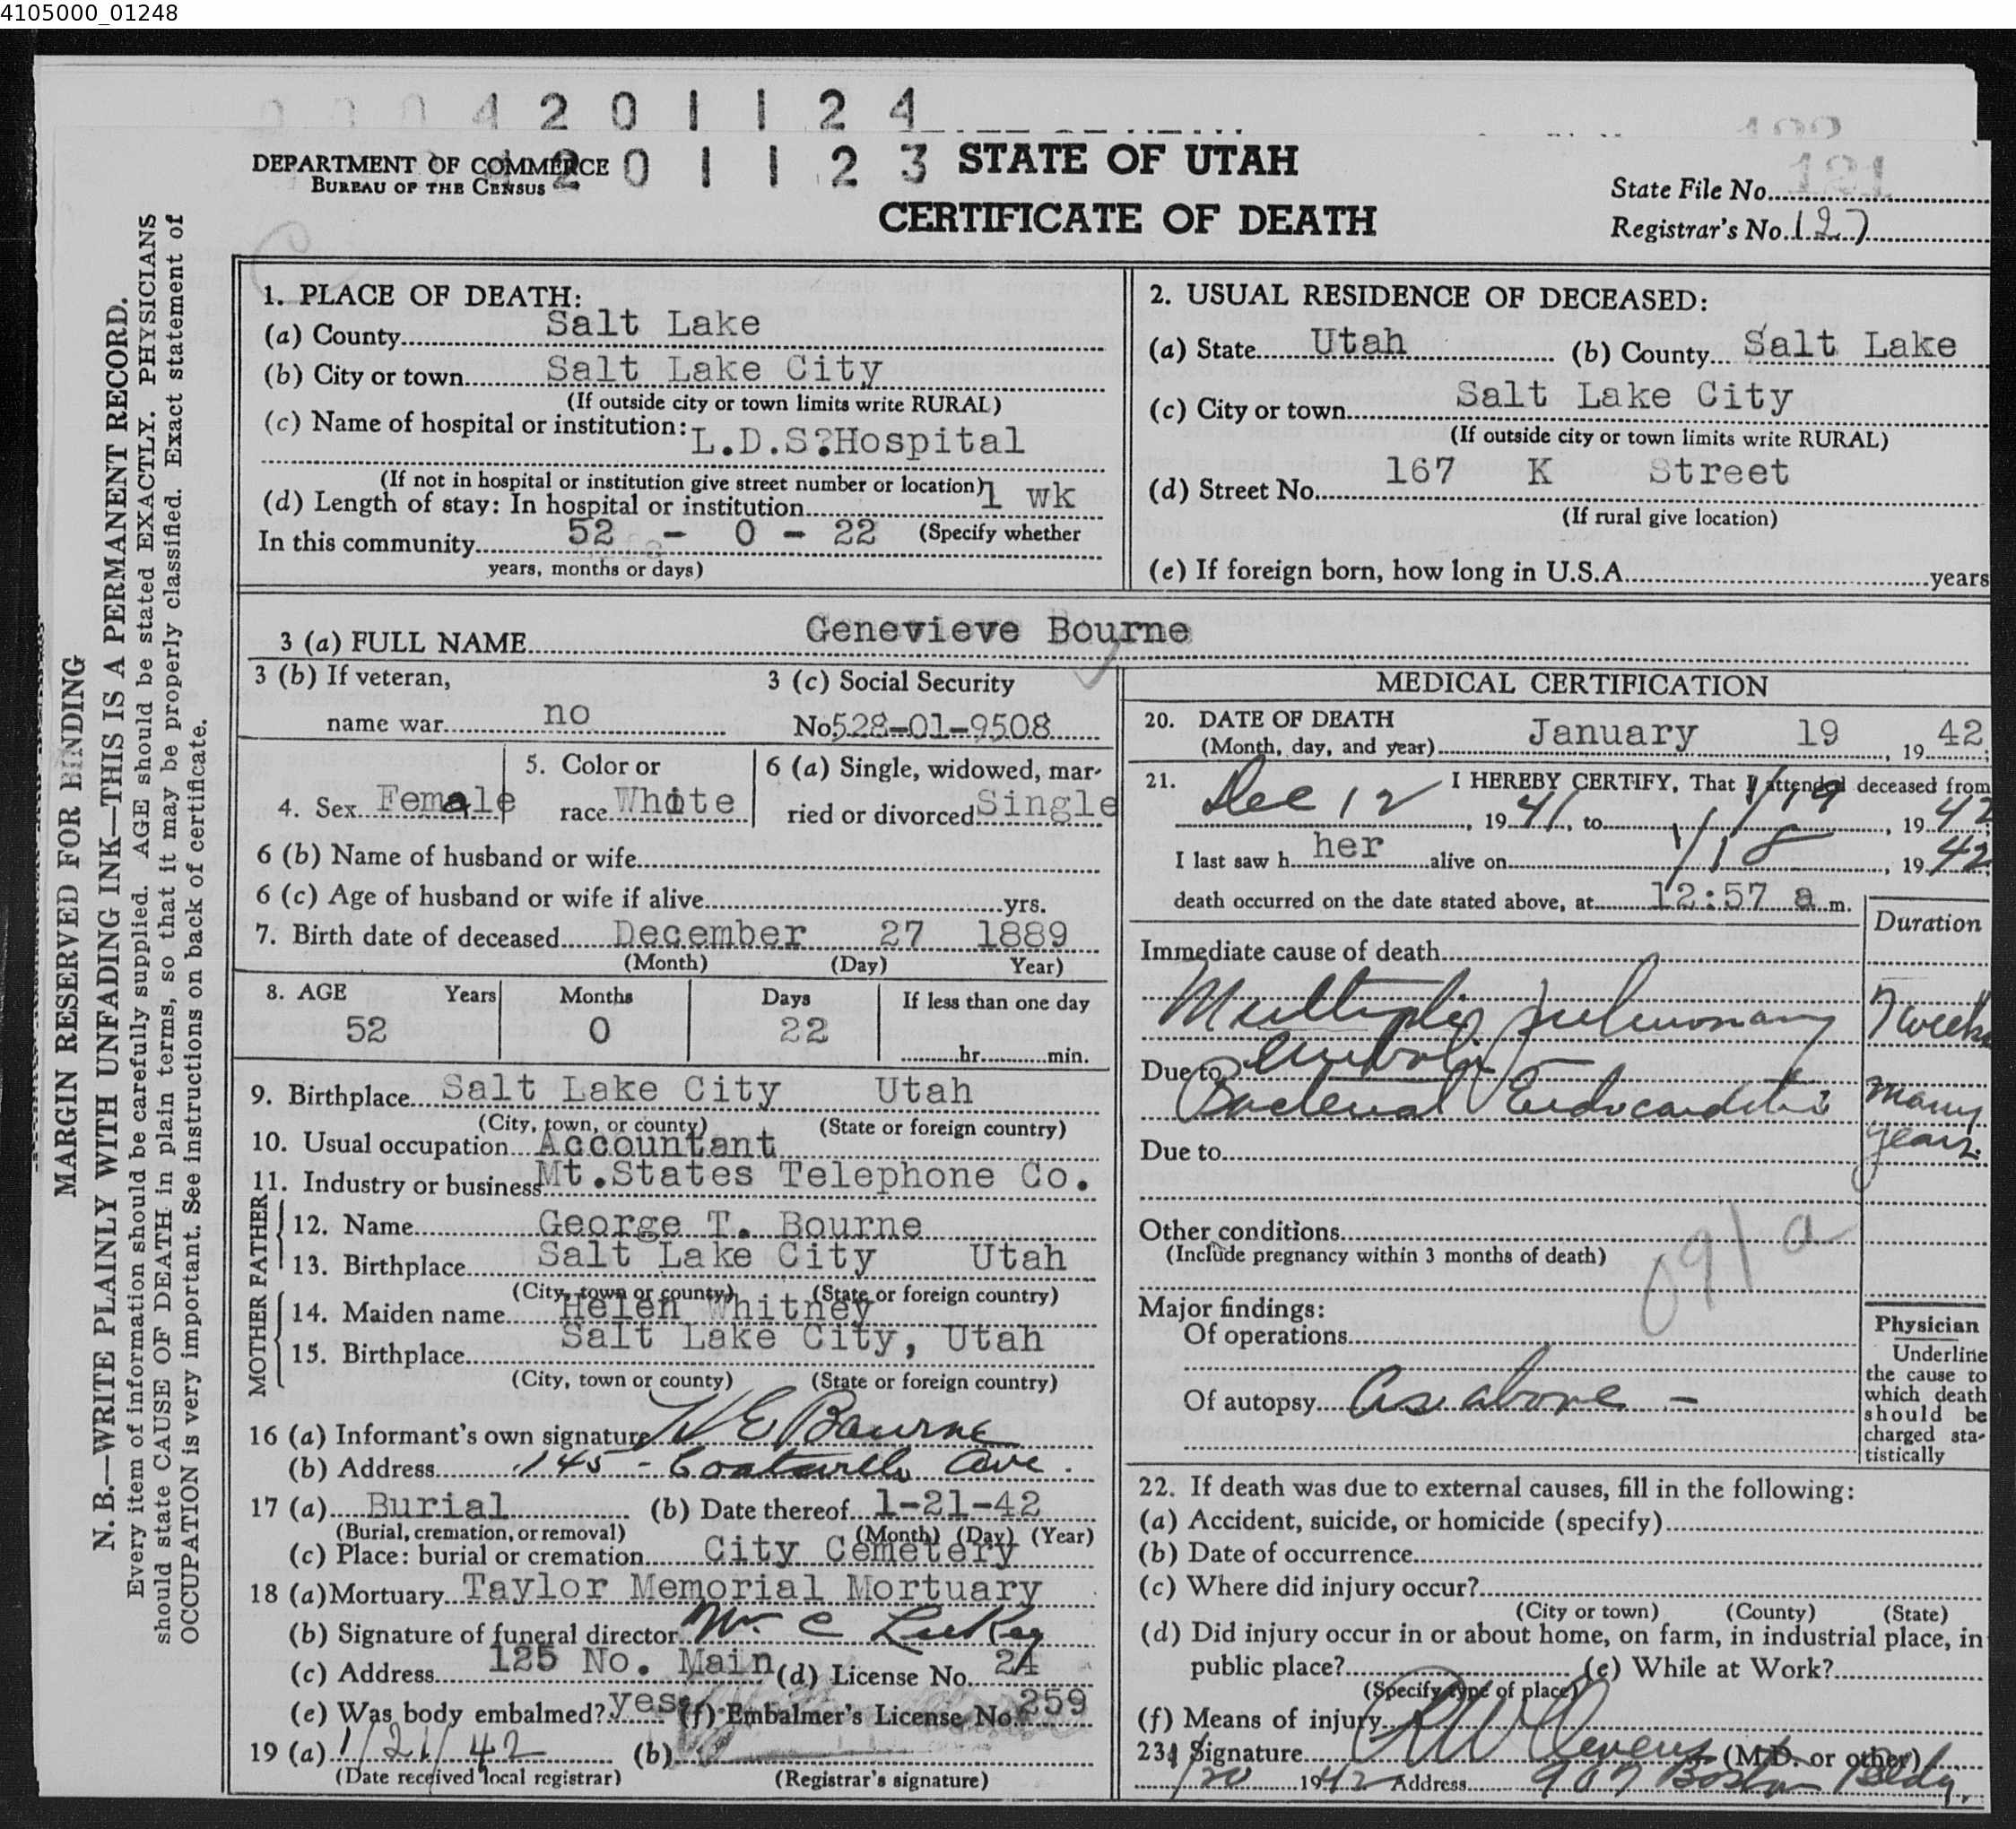 4105000_01248
4 2 0 1 1 2 4
DEPARTMENT OF COMMERCE
BUREAU OF THE CENSUS
2 0 1 1 2 3
STATE OF UTAH
CERTIFICATE OF DEATH
State File No. 121
Registrar's No. 127
MARGIN RESERVED FOR BINDING
N. B.—WRITE PLAINLY WITH UNFADING INK—THIS IS A PERMANENT RECORD.
Every item of information should be carefully supplied. AGE should be stated EXACTLY. PHYSICIANS
should state CAUSE OF DEATH in plain terms, so that it may be properly classified. Exact statement of
OCCUPATION is very important. See instructions on back of certificate.
1. PLACE OF DEATH:
(a) County Salt Lake
(b) City or town Salt Lake City
(If outside city or town limits write RURAL)
(c) Name of hospital or institution: L.D.S?Hospital
(If not in hospital or institution give street number or location)
(d) Length of stay: In hospital or institution 1 wk
In this community 52 - 0 - 22 (Specify whether
years, months or days)
2. USUAL RESIDENCE OF DECEASED:
(a) State Utah (b) County Salt Lake
(c) City or town Salt Lake City
(If outside city or town limits write RURAL)
(d) Street No. 167 K Street
(If rural give location)
(e) If foreign born, how long in U.S.A. years
3 (a) FULL NAME Genevieve Bourne
3 (b) If veteran,
name war no
3 (c) Social Security
No. 528-01-9508
4. Sex Female
5. Color or
race White
6 (a) Single, widowed, mar-
ried or divorced Single
6 (b) Name of husband or wife
6 (c) Age of husband or wife if alive yrs.
7. Birth date of deceased December 27 1889
(Month) (Day) Year)
8. AGE Years Months Days If less than one day
52 0 22 hr. min.
9. Birthplace Salt Lake City Utah
(City, town, or county) (State or foreign country)
10. Usual occupation Accountant
11. Industry or business Mt.States Telephone Co.
FATHER
12. Name George T. Bourne
13. Birthplace Salt Lake City Utah
(City, town or county) (State or foreign country)
MOTHER
14. Maiden name Helen Whitney
15. Birthplace Salt Lake City, Utah
(City, town or county) (State or foreign country)
16 (a) Informant's own signature E Bourne
(b) Address 145 - Ave.
17 (a) Burial (b) Date thereof 1-21-42
(Burial, cremation, or removal) (Month) (Day) (Year)
(c) Place: burial or cremation City Cemetery
18 (a) Mortuary Taylor Memorial Mortuary
(b) Signature of funeral director
(c) Address 125 No. Main (d) License No. 24
(e) Was body embalmed? yes. (f) Embalmer's License No. 259
19 (a) 1/21/42 (b)
(Date received local registrar) (Registrar's signature)
MEDICAL CERTIFICATION
20. DATE OF DEATH
(Month, day, and year) January 19, 1942
21. I HEREBY CERTIFY, That I attended deceased from
Dec 12, 1941, to 1/19, 1942;
I last saw her alive on 1/18, 1942
death occurred on the date stated above, at 12:57 a m.
Duration
Immediate cause of death
Multiple pulmonary 7 weeks
Due to emboli
Bacterial Endocarditis many
Due to years.
Other conditions
(Include pregnancy within 3 months of death)
091a
Major findings:
Of operations
Of autopsy As above -
Physician
Underline
the cause to
which death
should be
charged sta-
tistically
22. If death was due to external causes, fill in the following:
(a) Accident, suicide, or homicide (specify)
(b) Date of occurrence
(c) Where did injury occur?
(City or town) (County) (State)
(d) Did injury occur in or about home, on farm, in industrial place, in
public place? (e) While at Work?
(Specify type of place)
(f) Means of injury
23. Signature (M.D. or other)
1/20 1942 Address 907 Boston Bldg.